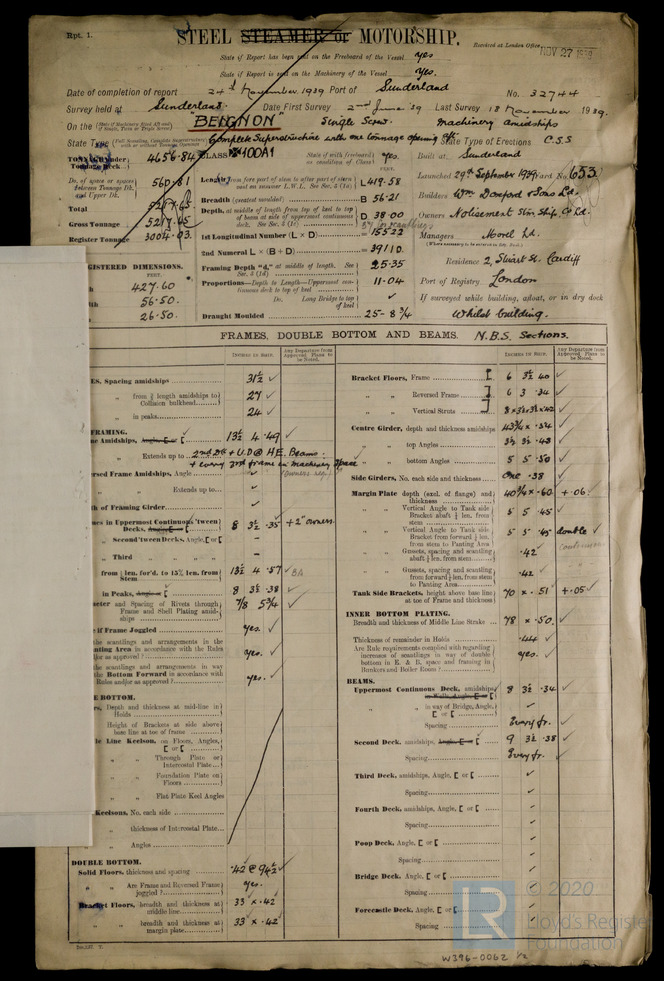 Rpt. 1.
STEEL STEAMER or MOTORSHIP.
Received at London Office NOV 27 1939
State if Report has been sent on the Freeboard of the Vessel yes
State if Report is sent on the Machinery of the Vessel yes.
Date of completion of report 24th November 1939 Port of Sunderland No. 32744
Survey held at Sunderland. Date First Survey 2nd June '39 Last Survey 18 November 1939.
On the "BEIGNON" Single Screw. Machinery amidships
State Type Complete Superstructure with one tonnage opening aft. State Type of Erections C.S.S
TONNAGE under Tonnage Deck 4656.84 CLASS 100A1 State if with freeboard as condition of Class yes. Built at Sunderland
Do. of space or spaces between Tonnage Dk. and Upper Dk. 560.81 L 419.58 Launched 29th September 1939 Yard No. 653
Total 5217.65 Breadth (greatest moulded) B 56.21 Builders Wm Doxford & Sons Ld.
Gross Tonnage 5217.65 Depth, at middle of length from top of keel to top of beam at side of uppermost continuous deck. See Sec. 3 (1c) D 38.00 Owners
Register Tonnage 3004.03. 1st Longitudinal Number (L × D) = 15522 Managers Morel Ld.
2nd Numeral L × (B + D) = 39110
REGISTERED DIMENSIONS.
FEET.
427.60 Framing Depth "d," at middle of length. See Sec. 3 (1d) 25.35 Residence 2, Stuart St. Cardiff
56.50. Proportions—Depth to Length—Uppermost continuous deck to top of keel 11.04 Port of Registry London
26.50. Do. Long Bridge to top of keel ✓ If surveyed while building, afloat, or in dry dock
Draught Moulded 25-8 3/4 Whilst building.
FRAMES, DOUBLE BOTTOM AND BEAMS. N.B.S. Sections.
INCHES IN SHIP. Any Departure from Approved Plans to be Noted.
INCHES IN SHIP. Any Departure from Approved Plans to be Noted.
ES, Spacing amidships 31½ ✓
" from ⅗ length amidships to Collision bulkhead 27 ✓
" in peaks 24 ✓
FRAMING.
Amidships, Angle, [ or [ 13½ 4 .49 ✓
" Extends up to 2nd Dk + U.D @ H.E. Beams
+ every 3rd frame in machinery space
ersed Frame Amidships, Angle ✓
" " Extends up to ✓
th of Framing Girder ✓
in Uppermost Continuous 'tween Decks, Angle, [ or [ 8 3½ .35 ✓ +2" owners.
" Second 'tween Decks, Angle, [ or [ –
" Third " " " –
from ⅕ len. for'd. to 15% len. from Stem 13½ 4 .57 ✓ BA
in Peaks, Angle or [ 8 3½ .38 ✓
eter and Spacing of Rivets through Frame and Shell Plating amidships 7/8 5¾ ✓
if Frame Joggled yes. ✓
the scantlings and arrangements in the Panting Area in accordance with the Rules (or as approved?) yes. ✓
the scantlings and arrangements in way Bottom Forward in accordance with Rules and/or as approved? yes. ✓
E BOTTOM.
rs, Depth and thickness at mid-line in Holds
Height of Brackets at side above base line at toe of frame
le Line Keelson, on Floors, Angles, [ or [
" " Through Plate or Intercostal Plate
" " Foundation Plate on Floors
" " Flat Plate Keel Angles
Keelsons, No. each side
" thickness of Intercostal Plate
" Angles
DOUBLE BOTTOM.
Solid Floors, thickness and spacing .42 @ 94½ ✓
" " Are Frame and Reversed Frame joggled? yes.
Bracket Floors, breadth and thickness at middle line 33 × .42 ✓
" " breadth and thickness at margin plate 33 × .42 ✓
Bracket Floors, Frame [ 6 3½ .40 ✓
" " Reversed Frame [ 6 3 .34 ✓
" " Vertical Struts ] 8 × 3½ × 3½ × .42 ✓
Centre Girder, depth and thickness amidships 43¾ × .54 ✓
" " top Angles 3½ 3½ .43 ✓
" " bottom Angles 5 5 .50 ✓
Side Girders, No. each side and thickness One .38 ✓
Margin Plate depth (excl. of flange) and thickness 40¾ × .60 ✓ + .06.
" " Vertical Angle to Tank side Bracket abaft ⅕ len. from stem 5 5 .45 ✓
" " Vertical Angle to Tank side Bracket from forward ⅕ len. from stem to Panting Area 5 5 .45 double ✓
" " Gussets, spacing and scantling abaft ⅕ len. from stem .42 ✓
" " Gussets, spacing and scantling from forward ⅕ len. from stem to Panting Area .42 ✓
Tank Side Brackets, height above base line at toe of Frame and thickness 70 × .51 ✓ +.05 ✓
INNER BOTTOM PLATING.
Breadth and thickness of Middle Line Strake 78 × .50. ✓
Thickness of remainder in Holds .44 ✓
Are Rule requirements complied with regarding increases of scantlings in way of double bottom in E. & B. space and framing in Bunkers and Boiler Room? yes. ✓
BEAMS.
Uppermost Continuous Deck, amidships 8 3½ .34 ✓
" " in way of Bridge, Angle, [ or [ ✓
Spacing Every fr. ✓
Second Deck, amidships, Angle, [ or [ 9 3½ .38 ✓
Spacing Every fr. ✓
Third Deck, amidships, Angle, [ or [ ✓
Spacing ✓
Fourth Deck, amidships, Angle, [ or [ ✓
Spacing ✓
Poop Deck, Angle, [ or [ ✓
Spacing ✓
Bridge Deck, Angle, [ or [ ✓
Spacing ✓
Forecastle Deck, Angle, [ or [ ✓
Spacing ✓
LR © 2020
Lloyd's Register
Foundation
W396-0062 1/2